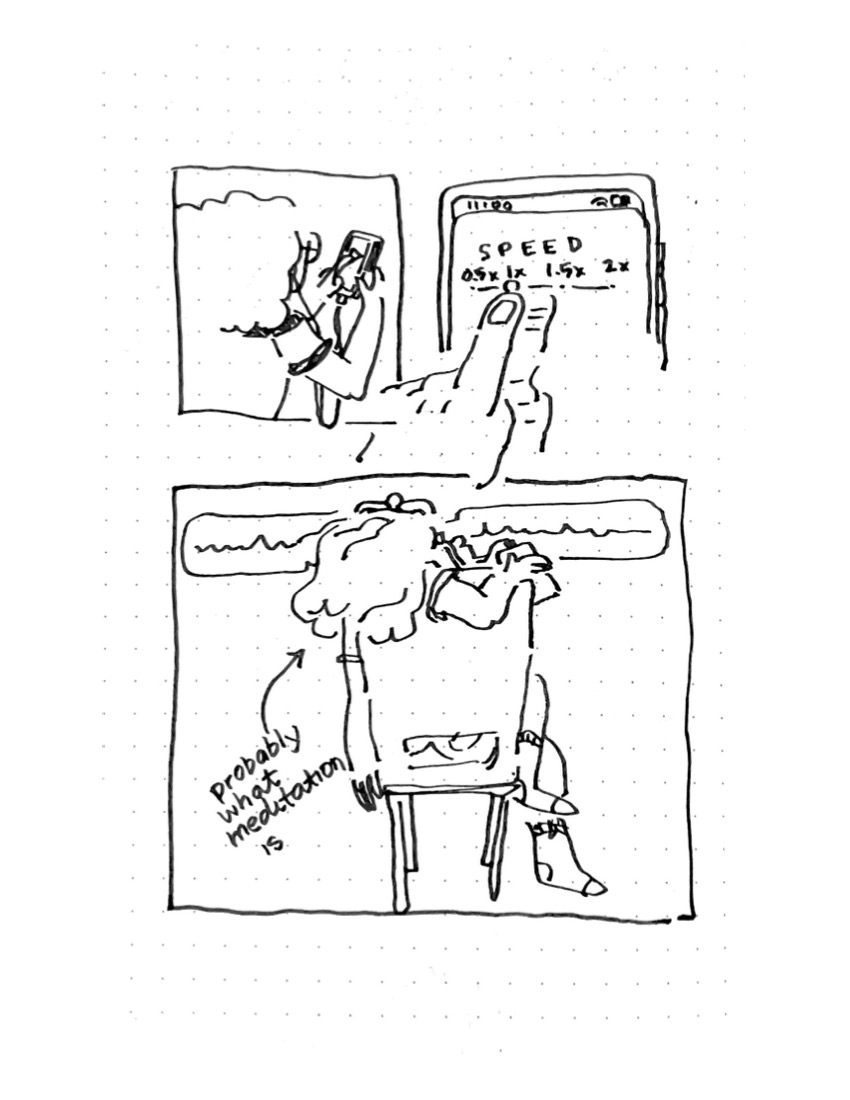 11:00
SPEED
0.5x 1x 1.5x 2x
Probably
what
meditation
is